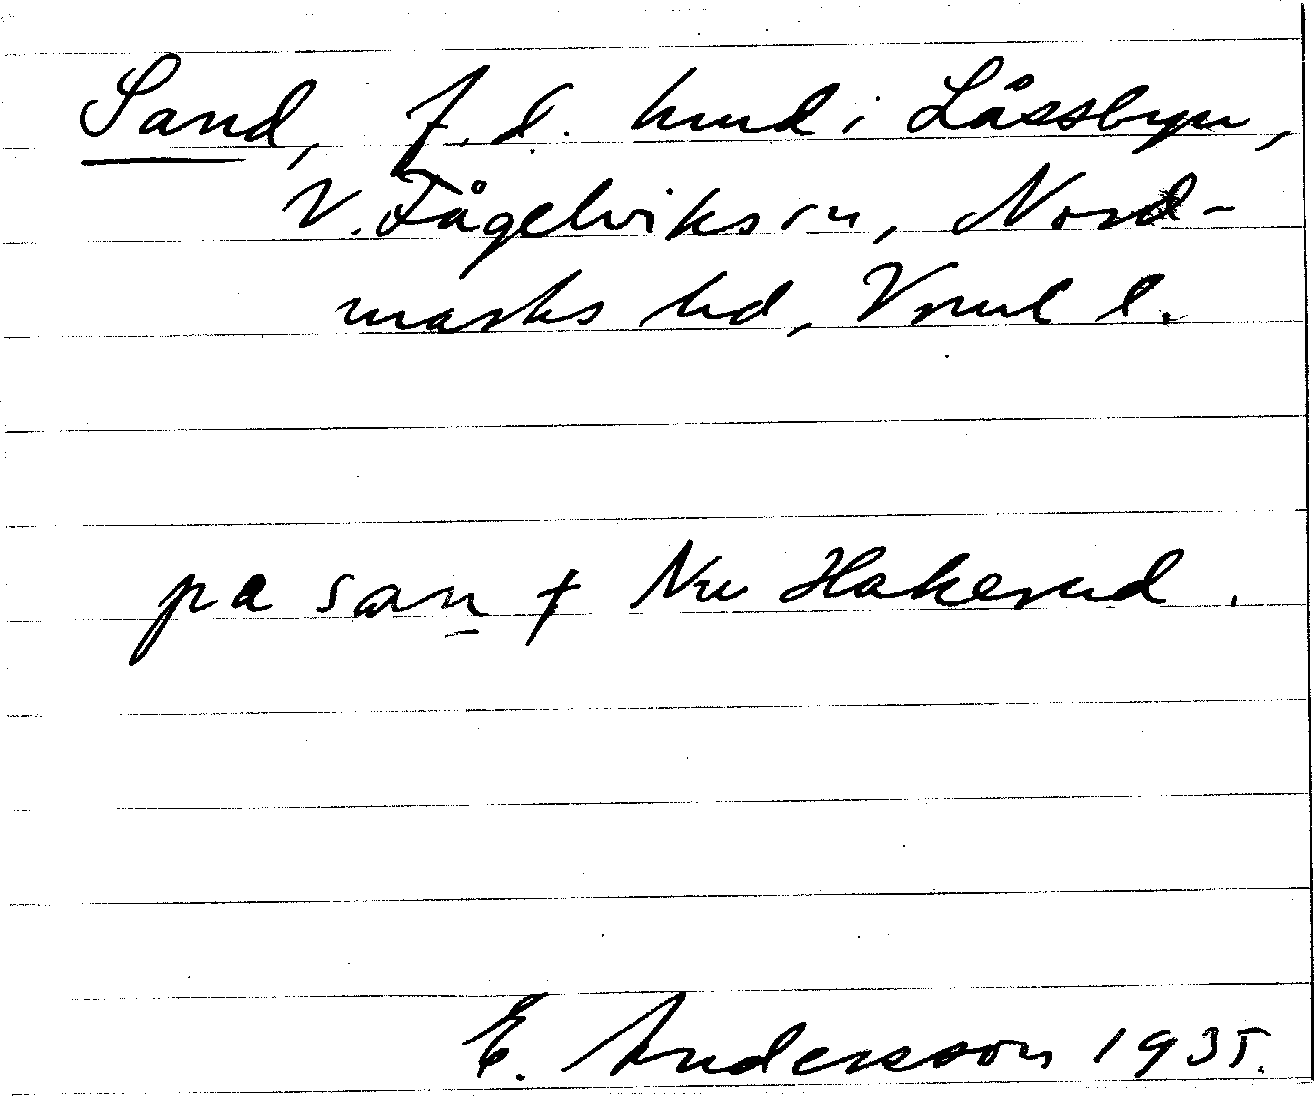 Sand, f.d. hmd i Låssbyn,
V. Fågelviks sn, Nord-
marks hd, Vrml l.
pa san̲ + Nu Hakerud.
E. Andersson 1935.